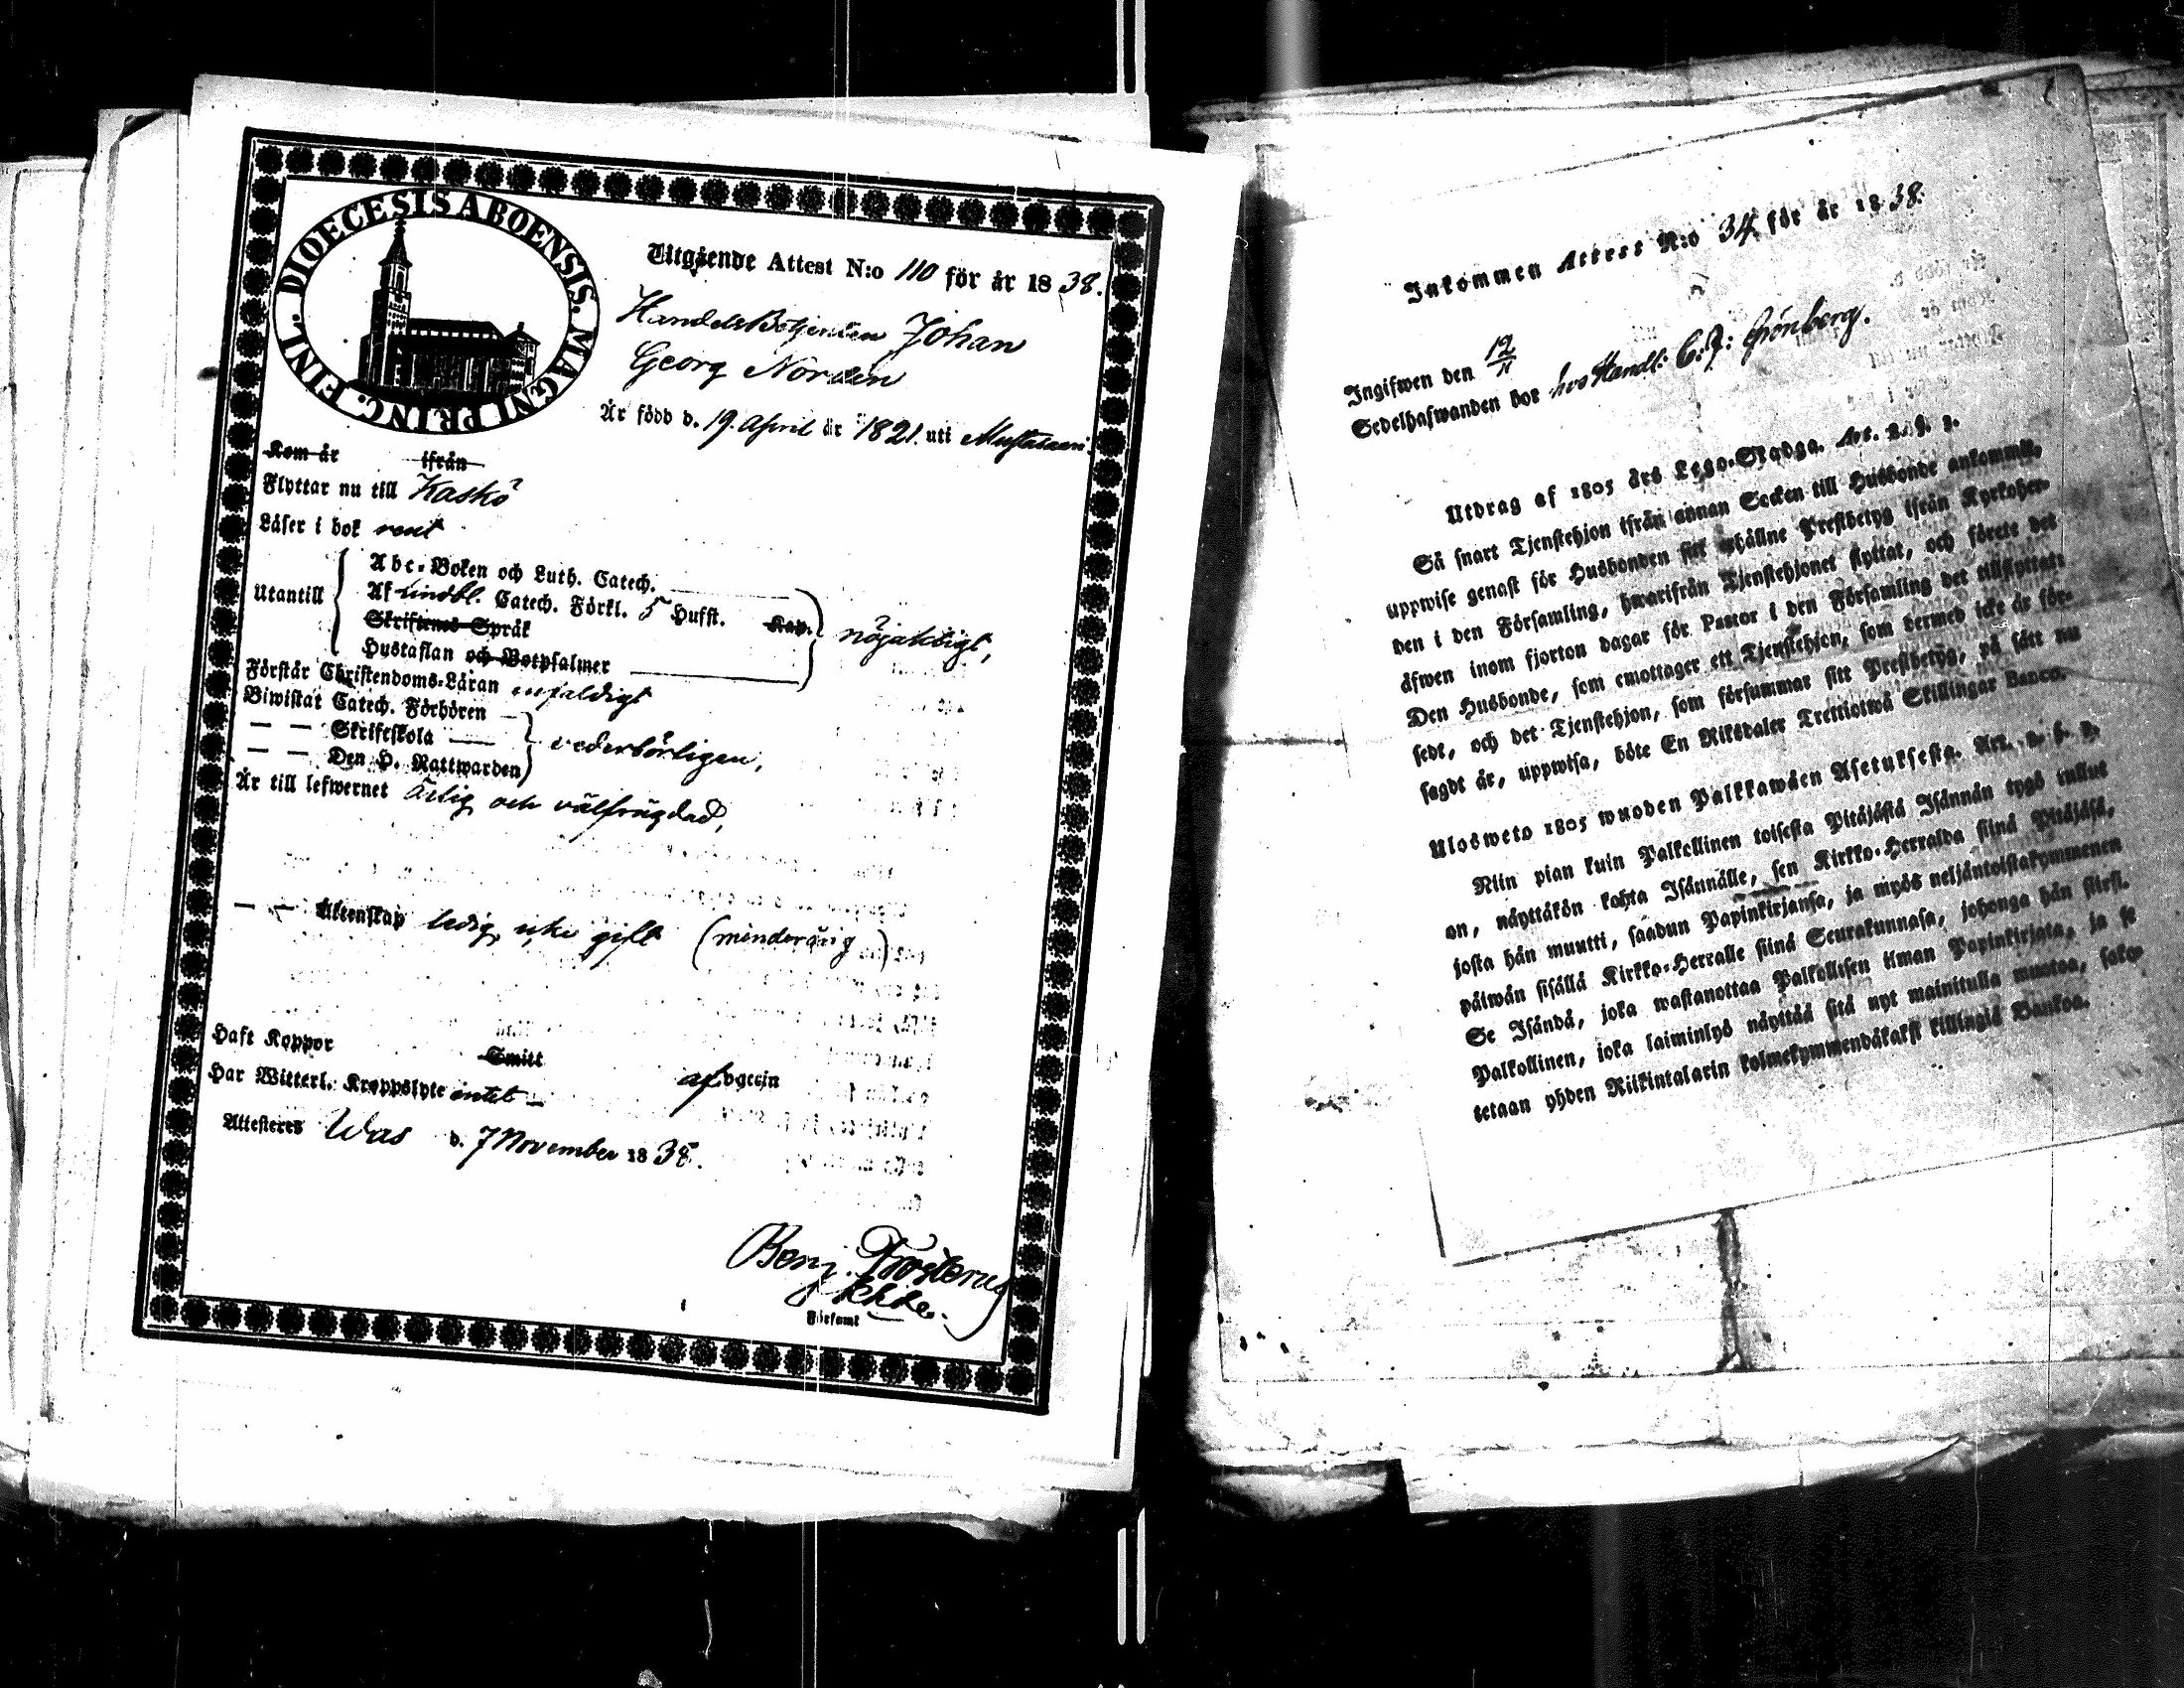 DIOECESIS ABOENSIS. MAGNI PRINC. FINL.
Utgående Attest N:o 110 för år 1838.
HandelsBetjenten Johan
Georg Norden
År född d. 19. April år 1821. uti Mustasaari
Kom år ifrån
Flyttar nu till Kaskö
Läser i bok rent
Utantill
Abc-Boken och Luth. Catech.
Af Lindbl. Catech. Förkl. 5 Hufst. Kap.
Skriftenes Språk
Hustaflan och Botpsalmer
nöjaktigt,
Förstår Christendoms-Läran enfaldigt
Biwistat Catech. Förhören
— — Skriftskola —
— — Den H. Nattwarden
vederbörligen,
Är till lefwernet ärlig och välfrägdad,
— — Äktenskap ledig, icke gift (minderårig)
Haft Koppor Smitt
Har Witterl. Kroppslyte intet — af ogein
Attesteres Was d. 7 November 1838.
Benj.
Förkamt
Inkommen Attest N:o 34 för år 1838.
Ingifwen den 12/11
Sedelhafwanden bor hos Handl: C: J: Grönberg.
Utdrag af 1805 års Lego-Stadga. Art. 2. §. 2.
Så snart Tjenstehjon ifrån annan Socken till Husbonde ankommit,
uppwise genast för Husbonden sitt erhållne Prestbetyg ifrån Kyrkoher-
den i den Församling, hwarifrån Tjenstehjonet flyttat, och förete det
äfwen inom fjorton dagar för Pastor i den Församling det tillflyttat:
Den Husbonde, som emottager ett Tjenstehjon, som dermed icke är för-
sedt, och det Tjenstehjon, som försummar sitt Prestbetyg, på sätt nu
sagdt är, uppwisa, böte En Riksdaler Trettiotwå Skillingar Banco.
Ulosweto 1805 wuoden Palkkawäen Asetuksesta. Art. 2. §. 2.
Niin pian kuin Palkollinen toisesta Pitäjästä Isännän tygö tullut
on, näyttäkön kohta Isännälle, sen Kirkko-Herralda siinä Pitäjäsä,
josta hän muutti, saadun Papinkirjansa, ja myös neljäntoistakymmenen
päiwän sisällä Kirkko-Herralle siinä Seurakunnasa, johonga hän siirsi.
Se Isändä, joka wastanottaa Palkollisen ilman Papinkirjata, ja se
Palkollinen, joka laiminlyö näyttää sitä nyt mainitulla muotoa, sako-
tetaan yhden Riikintalarin kolmekymmendäkaksi killingiä Bankoa.